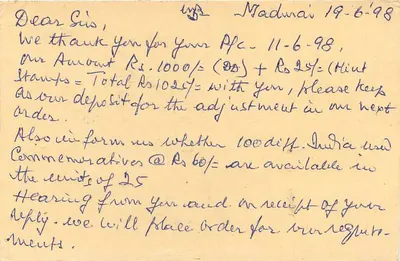 Madurai 19-6-'98
Dear Sirs,
We thank you for your P/c - 11-6-98,
our Amount Rs. 1000/= (DD) + Rs 25/= (Mint
Stamps = Total Rs 1025/= with you, please keep
as our deposit for the adjustment in our next
order.
Also inform us whether 100 diff. India used
Commemoratives @ Rs 60/= are available in
the units of 25
Hearing from you and on receipt of your
reply. we will place order for our require-
ments.